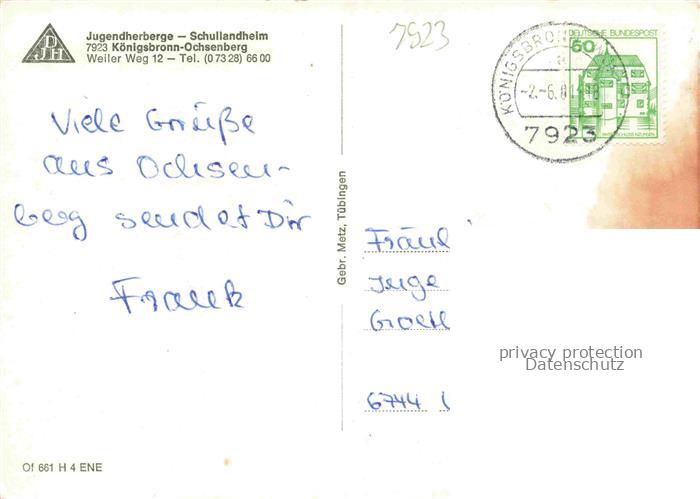 DJH
Jugendherberge — Schullandheim
7923 Königsbronn-Ochsenberg
Weiler Weg 12 — Tel. (0 73 28) 66 00
7923
KÖNIGSBRONN
-2.-6.
7923
DEUTSCHE BUNDESPOST
50
Viele Grüße
aus Ochsen-
berg sendet Dir
Frank
Gebr. Metz, Tübingen
Fräul
Inge
6744
privacy protection
Datenschutz
Of 661 H 4 ENE